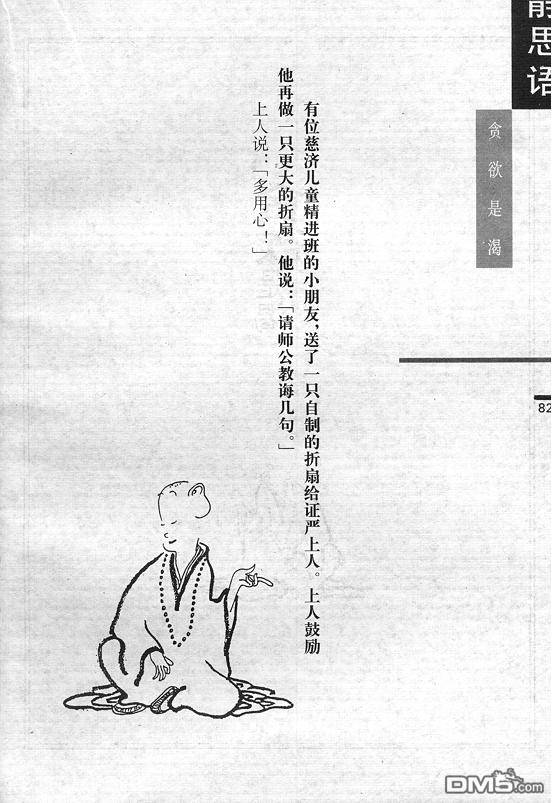 静思语
贪欲是渴
82
有位慈济儿童精进班的小朋友，送了一只自制的折扇给证严上人。上人鼓励
他再做一只更大的折扇。他说：「请师公教诲几句。」
上人说：「多用心！」
DM5.com